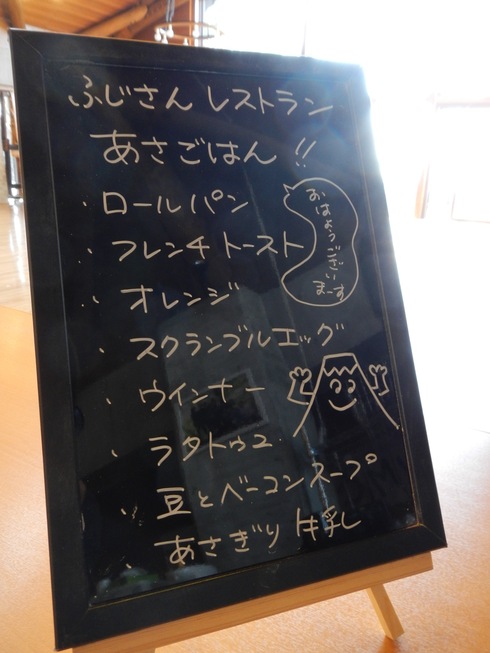 ふじさんレストラン
あさごはん!!
、ロールパン
、フレンチトースト
、オレンジ
、スクランブルエッグ
、ウインナー
、ラタトゥユ
、豆とベーコンスープ
、あさぎり牛乳
おはようござい
まーす